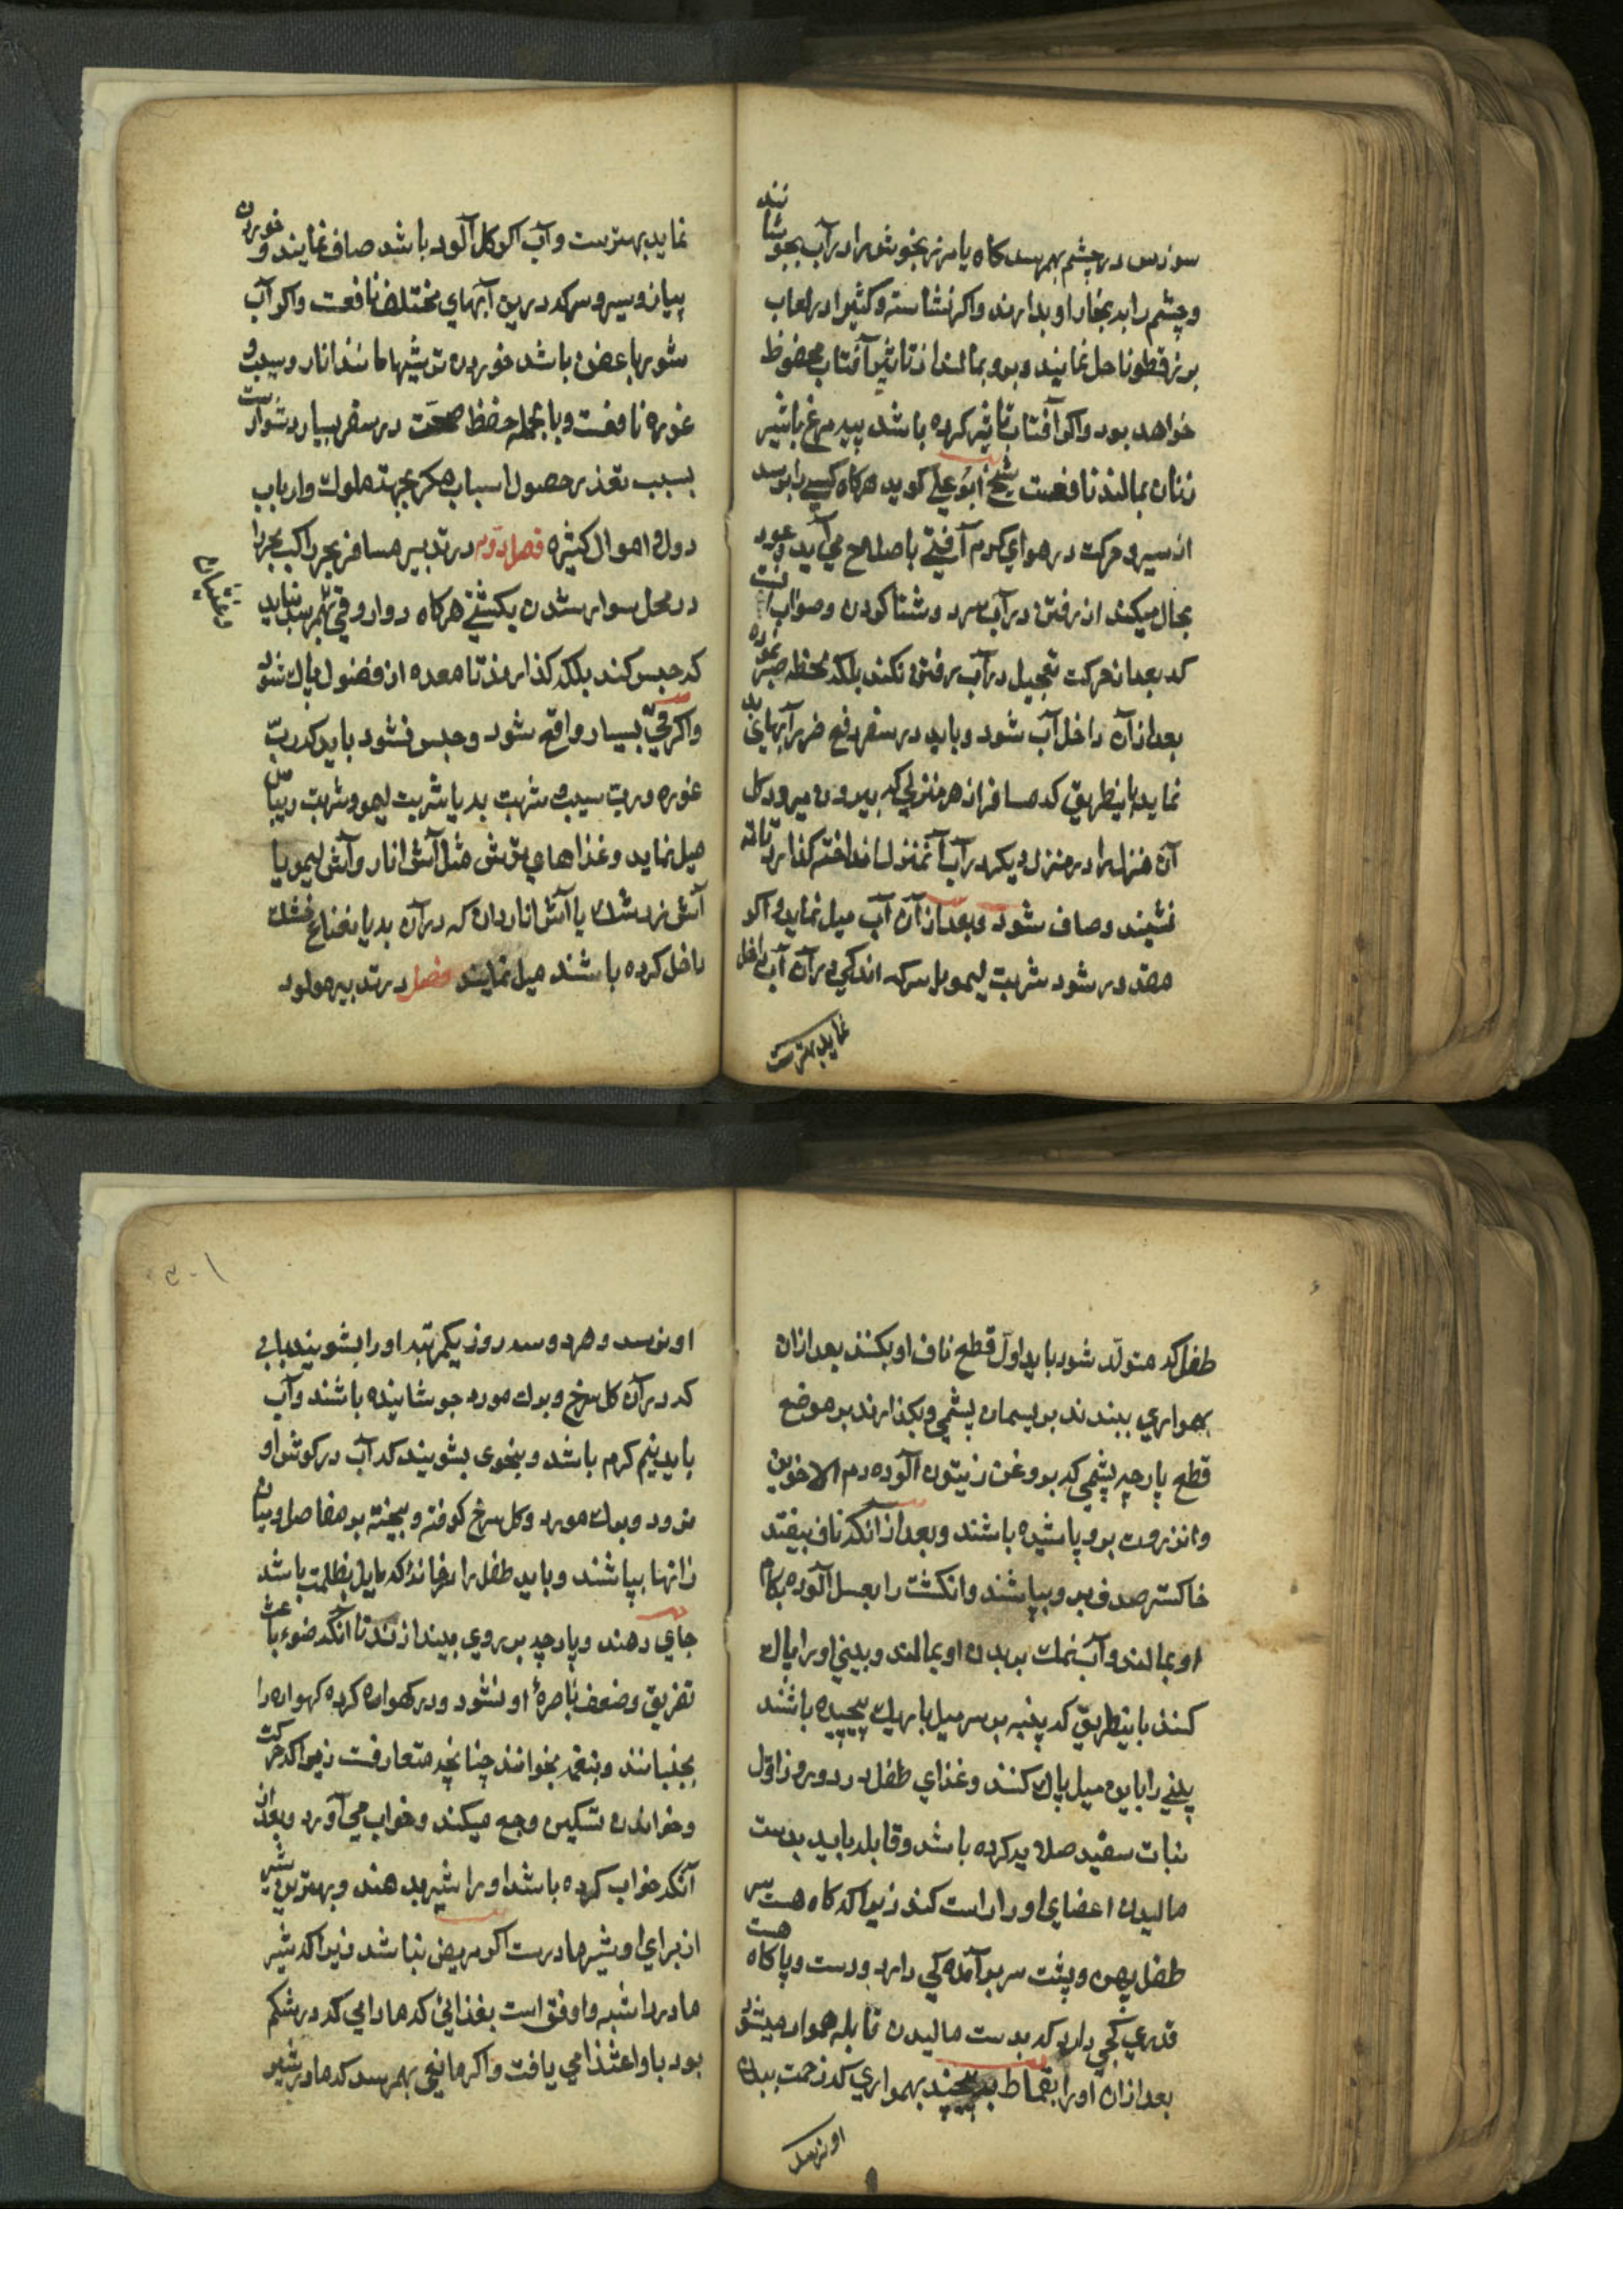 سوزس در چشم بهمرسد کاه یا مرزنجوش را در آب بجوشانند
و چشم را بدبخار او بدارند و اکر نشاسته و کثیرا در لعاب
بزرقطونا حل نمایند و برو بمالند از تاثیر آفتاب محفوظ
خواهد بود و اکر آفتاب تاثیر کرده باشد پیه مرغ باشیر
زنان بمالند نافعست شیخ ابوعلی کوید هرکاه کسی را برسد
از سیر و حرکت در هوای کرم آفتی باصلاح می آید و عود
بحال میکند از رفتن در آب سرد و شنا کردن و صواب
که بعد از حرکت تعجیل در آب رفتن نکند بلکه لحظه صبر نموده
بعد از آن داخل آب شود و باید در سفر دفع ضرر آبهای بد
نماید باینطریق که مسافر از هر منزلی که بیرون میرود کل
آن منزل را در منزل دیکر در آب آنمنزل انداخته کذارد تا ته
نشیند و صاف شود و بعد از آن آب میل نماید و اکر
مقدور شود شربت لیمو یا سرکه اندکی در آن آب داخل
نماید بهترست
نماید بهترست و آب اکر کل آلود باشد صاف نمایند و خوردن
پیاز و سیر و سرکه درین آبهای مختلف نافعست و اکر آب
شور یا عفن باشد خوردن ترشیها مانند انار و سیب و
غوره نافعست و بالجمله حفظ صحت در سفر بسیار دشوارست
بسبب تعذر حصول اسباب مکر بجهة ملوک و ارباب
دول و اموال کثیره فصل دوم در تدبیر مسافر بحر راکب بحر را
در محل سوار شدن یکشتی هرکاه دوار و قی بهمرسد نباید
که حبس کند بلکه کذارند تا معده از فضول پاک شود
و اکر قی بسیار واقع شود و حبس نشود باید که رب
غوره و رب سیب و شربت به یا شربت لیمو و شربت ریباس
میل نماید و غذاهای ترش مثل آش انار و آش لیمو یا
آش زرشک یا آش اناردان که در آن به یا نعناع خشک
داخل کرده باشند میل نمایند فصل در تدبیر مولود
طفل که متولد شود باید اول قطع ناف او بکنند بعد ازان
بهمواری ببندند بریسمان پشمی و بکذارند بر موضع
قطع پارچه پشمی که بروغن زیتون آلوده دم الاخوین
و انزروت برو پاشیده باشند و بعد از آنکه ناف بیفتد
خاکستر صدف برو بپاشند و انکشت را بعسل آلوده بکام
او بمالند و آب نمک بر بدن او بمالند و بینی او را پاک
کنند باینطریق که پنبه بر سر میل باریک پیچیده باشند
بینی را باین میل پاک کنند و غذای طفل در دو روز اول
نبات سفید صلایه کرده باشد و قابله باید بدست
مالیدن اعضای او را راست کند زیرا که کاه هست سر
طفل پهن و پشت سر برآمدکی دارد و دست و پا کاه هست
قدری کجی دارد که بدست مالیدن قابله هموار میشود
بعد ازان او را بقماط بپیچند بهمواری که زحمت ببدن
او نرسد
او نرسد و هر دو سه روز یکمرتبه او را بشویند بابی
که در آن کل سرخ و برک مورد جوشانیده باشند و آب
باید نیم کرم باشد و بنحوی بشویند که آب در کوش او
نرود و برک مورد و کل سرخ کوفته و بیخته بر مفاصل و میان
رانها بپاشند و باید طفل را در خانۀ که مایل بظلمت باشد
جای دهند و پارچه بر روی بیندازند تا آنکه ضوء باعث
تفریق و ضعف باصرۀ او نشود و در کهواره کرده کهواره را
بجنبانند و بنغمه بخوانند چنانچه متعارفست زیرا که حرکت
و خواندن تسکین وجع میکند و خواب می آورد و بعد از
آنکه خواب کرده باشد او را شیر بدهند و بهترین شیر
از برای او شیر مادرست اکر مریض نباشد زیرا که شیر
مادر اشبه و اوفق است بغذائی که مادامی که در شکم
بود باو اغتذا می یافت و اکر مانعی بهمرسد که مادر شیر